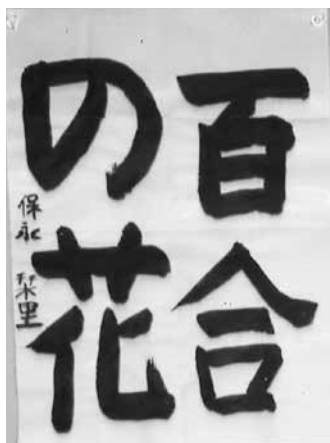 百合
の花
保永 栞里